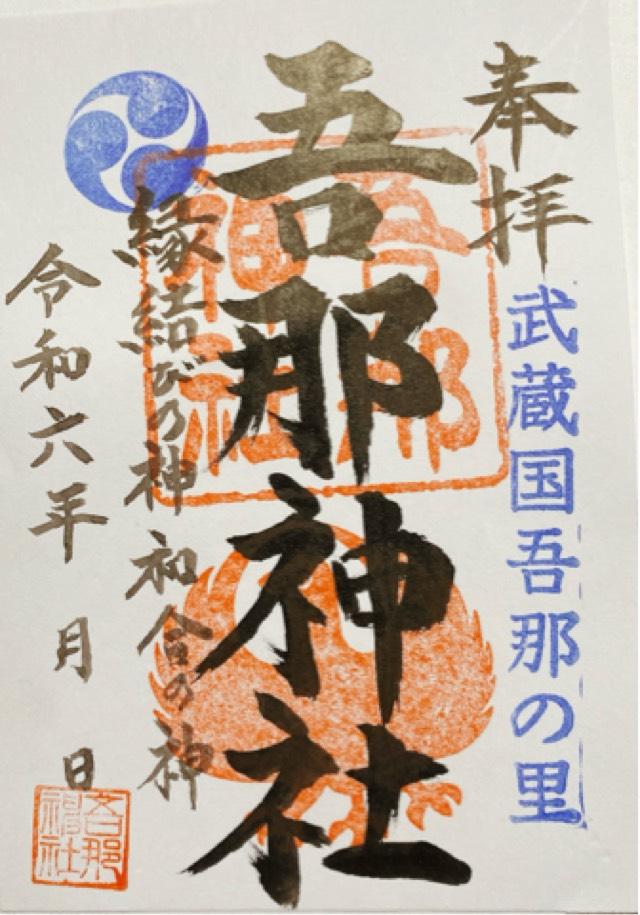 奉拝
武蔵国吾那の里
吾那神社
吾那神社
縁結びの神 和合の神
令和六年 月 日
吾那神社